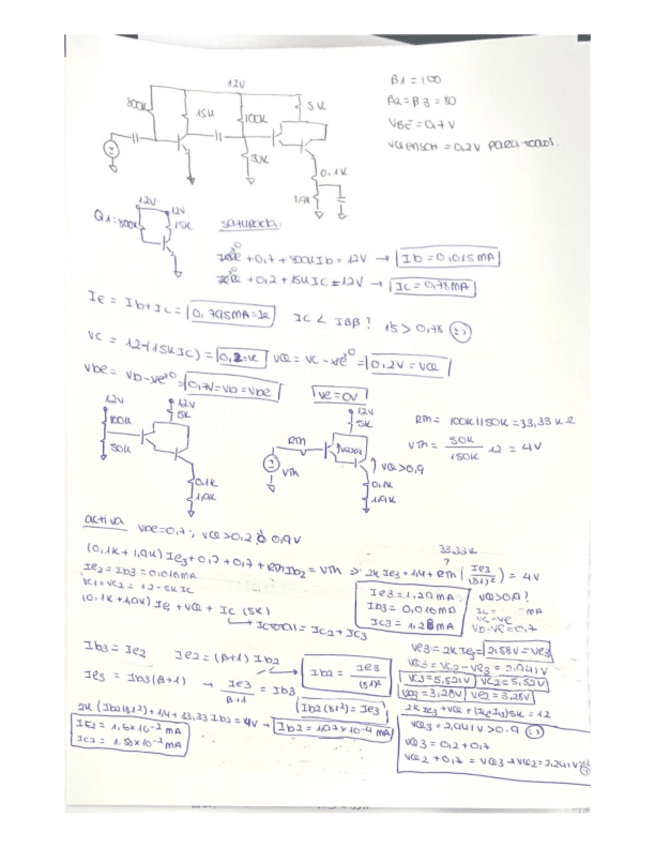 12V
B1 = 100
B2 = B3 = 80
VBE = 0,7V
VCE ENSCH = 0,2V PARA TODOS.
800K
15K
100K
5K
50K
0,1K
1,9K
Q1:
12V
12V
800K
15K
saturada:
+0,7 + 800K Ib = 12V → Ib = 0,015mA
+0,2 + 15K IC = 12V → IC = 0,78mA
Ie = Ib + Ic = 0,795mA = Ie
IC < IBβ? 15 > 0,78
VC = 12-(15K IC) = 0,2 = VC
VCE = VC - Ve = 0,2V = VCE
Vbe = Vb - Ve = 0,7V = Vb = Vbe
Ve = 0V
12V
100K
50K
12V
5K
0,1K
1,9K
RTh
VTh
12V
5K
VCE > 0,9
0,1K
1,9K
RTh = 100K||50K = 33,33K Ω
VTh = 50K/150K 12 = 4V
activa Vbe = 0,7; VCE > 0,2 ó 0,9V
33,33K
(0,1K + 1,9K) Ie3 + 0,7 + 0,7 + RTh Ib2 = VTh → 2K Ie3 + 1,4 + RTh (Ie3/(81)²) = 4V
Ie2 = Ib3 = 0,016mA
VC1 = VC2 = 12 - 5K IC
(0,1K + 1,9K) Ie + VCE + IC (5K)
IC total = IC2 + IC3
Ie3 = 1,29mA
Ib3 = 0,016mA
IC3 = 1,28mA
VCE > 0,9?
Ib3 = Ie2
Ie2 = (β+1) Ib2
Ib2 = Ie3/(81)²
Ie3 = Ib3(β+1) → Ie3/β+1 = Ib3
Ib2(81²) = Ie3
2K (Ib2(81²)) + 1,4 + 33,33 Ib2 = 4V → Ib2 = 1,97x10⁻⁴ mA
IE2 = 1,6x10⁻² mA
IC2 = 1,58x10⁻² mA
Ve3 = 2K Ie3 = 2,58V = Ve3
VCE3 = VC3 - Ve3 = 2,941V
VC3 = 5,521V
VC2 = 5,52V
VB3 = 3,28V
Ve2 = 3,28V
2K Ie3 + VCE + (IC2+IC3) 5K = 12
VCE3 = 2,941V > 0,9
VCE3 = 0,2 + 0,7
VCE2 + 0,7 = VCE3 → VCE2 = 2,241V